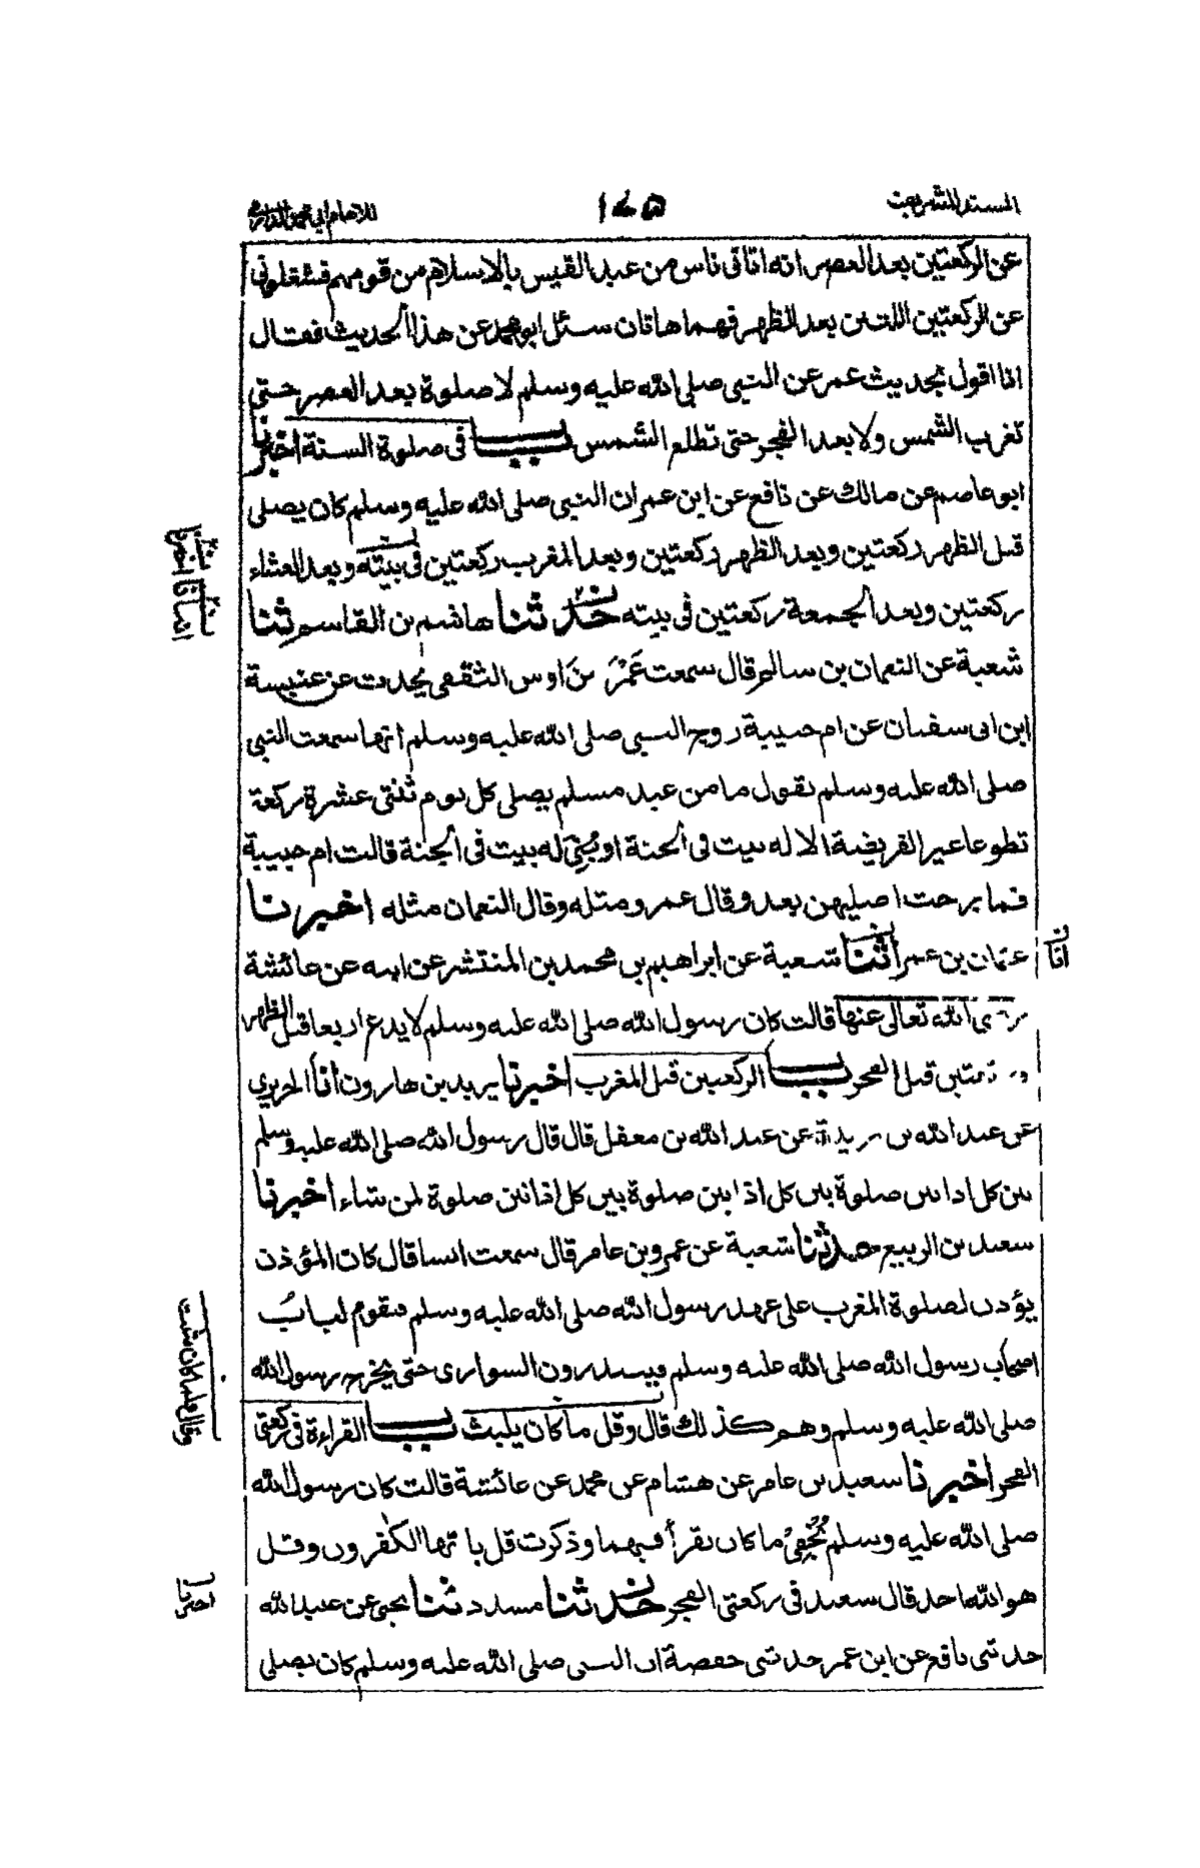 المسند للشريف ١٧٥ للامام ابي محمد الدارمي
عن الركعتين بعد العصر انه اتانى ناس من عبد القيس بالاسلام من قومهم فشغلونى
عن الركعتين اللتين بعد الظهر فهما هاتان سئل ابو محمد عن هذا الحديث فقال
انا اقول بحديث عمر عن النبى صلى الله عليه وسلم لا صلوة بعد العصر حتى
تغرب الشمس ولا بعد الفجر حتى تطلع الشمس باب فى صلوة السنة اخبرنا
ابو عاصم عن مالك عن نافع عن ابن عمر ان النبى صلى الله عليه وسلم كان يصلى
قبل الظهر ركعتين وبعد الظهر ركعتين وبعد المغرب ركعتين فى بيته وبعد العشاء
ركعتين وبعد الجمعة ركعتين فى بيته حدثنا هاشم بن القاسم ثنا
شعبة عن النعمان بن سالم قال سمعت عمرو بن اوس الثقفى يحدث عن عنبسة
ابن ابى سفيان عن ام حبيبة زوج النبى صلى الله عليه وسلم انها سمعت النبى
صلى الله عليه وسلم يقول ما من عبد مسلم يصلى كل يوم ثنتى عشرة ركعة
تطوعا غير الفريضة الا له بيت فى الجنة او بنى له بيت فى الجنة قالت ام حبيبة
فما برحت اصليهن بعد وقال عمرو مثله وقال النعمان مثله اخبرنا
عثمان بن عمر اثنا شعبة عن ابراهيم بن محمد بن المنتشر عن ابيه عن عائشة
انا
رضى الله تعالى عنها قالت كان رسول الله صلى الله عليه وسلم لا يدع اربعا قبل الظهر
وركعتين قبل الفجر باب الركعتين قبل المغرب اخبرنا يزيد بن هارون أنا الجريري
عن عبد الله بن بريدة عن عبد الله بن مغفل قال قال رسول الله صلى الله عليه وسلم
بين كل اذانين صلوة بين كل اذانين صلوة بين كل اذانين صلوة لمن شاء اخبرنا
سعيد بن الربيع حدثنا شعبة عن عمرو بن عامر قال سمعت انسا قال كان المؤذن
يؤذن لصلوة المغرب على عهد رسول الله صلى الله عليه وسلم فيقوم لباب
اصحاب رسول الله صلى الله عليه وسلم فيبتدرون السوارى حتى يخرج رسول الله
صلى الله عليه وسلم وهم كذلك قال وقل ما كان يلبث باب القراءة فى ركعتى
وقال قلما كان يلبث
الفجر اخبرنا سعيد بن عامر عن هشام عن محمد عن عائشة قالت كان رسول الله
صلى الله عليه وسلم يُخْفِىْ ما كان يقرأ فيهما وذكرت قل يا ايها الكفرون وقل
هو الله احد قال سعيد فى ركعتى الفجر حدثنا مسدد ثنا يحيى عن عبيد الله
اخبرنا
حدثنى نافع عن ابن عمر حدثتنى حفصة ان النبى صلى الله عليه وسلم كان يصلى